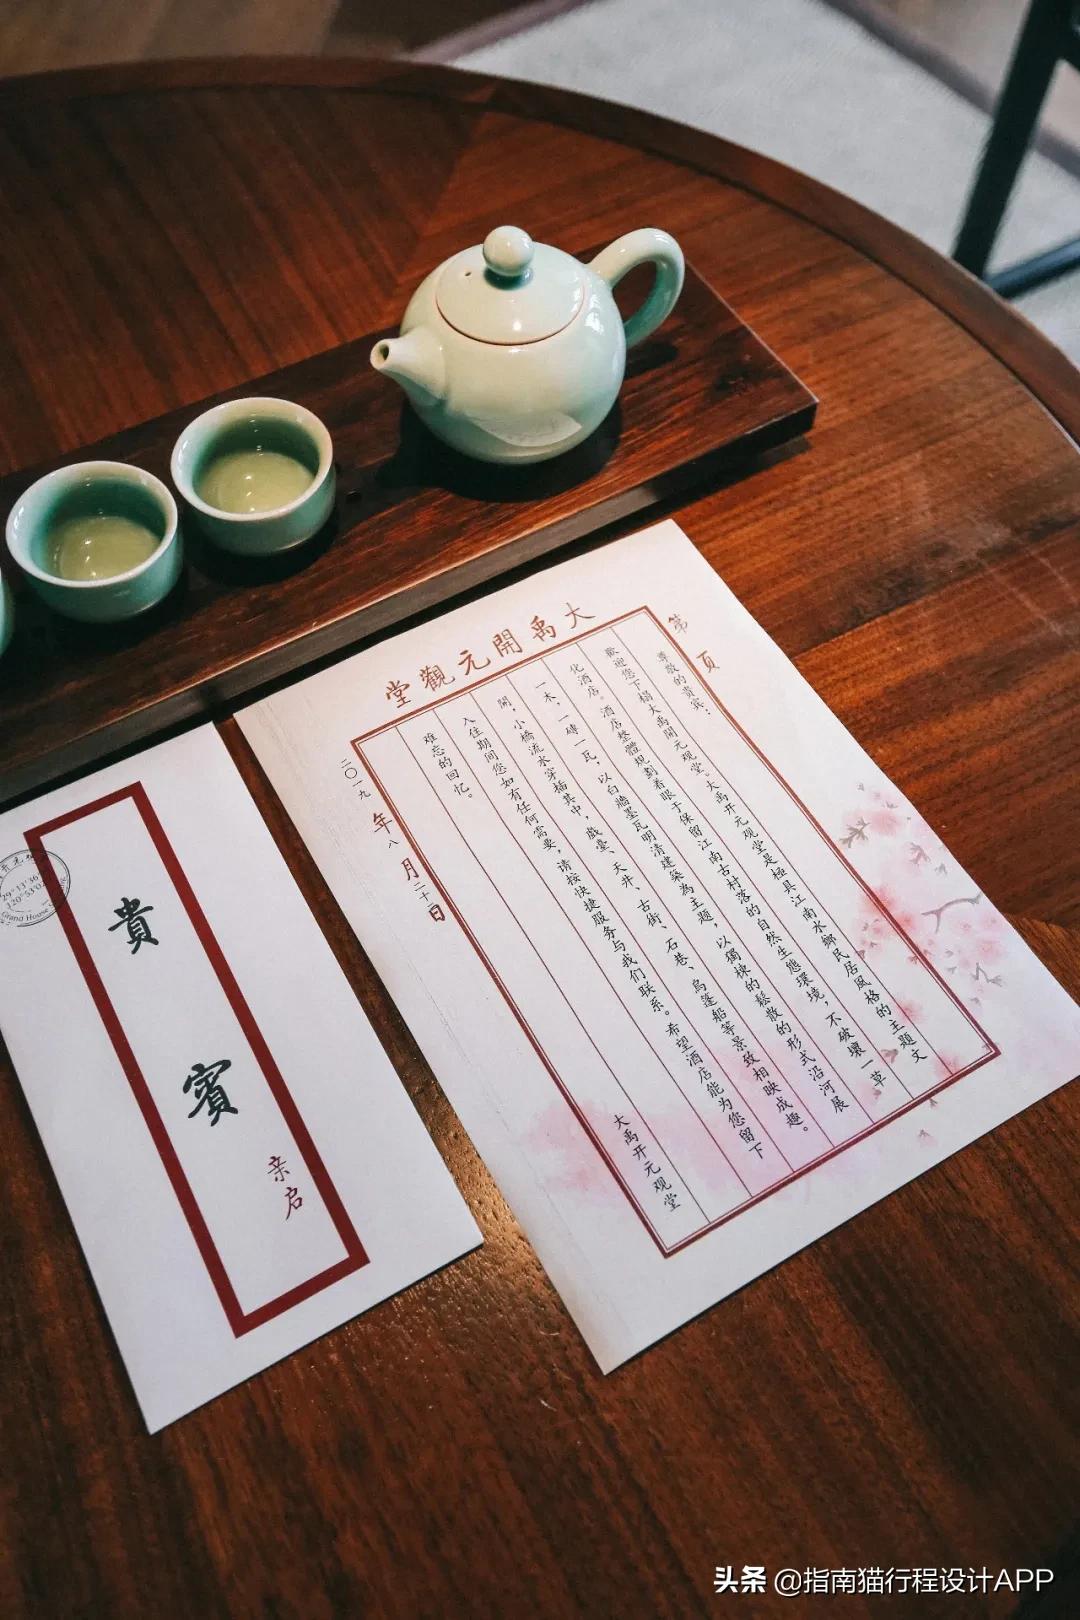 大禹開元觀堂
第 页
尊敬的贵宾：
歡迎您下榻大禹開元观堂。大禹开元观堂是極具江南水鄉民居風格的主題文
化酒店。酒店整體規劃着眼于保留江南古村落的自然生態環境，不破壞一草
一木，一磚一瓦，以白牆墨瓦明清建築為主題，以獨棟的鬆散的形式沿河展
開，小橋流水穿插其中，戲臺、天井、古街、石巷、烏蓬船等景致相映成趣。
入住期间您如有任何需要，请按快捷服务与我们联系。希望酒店能为您留下
难忘的回忆。
大禹开元观堂
二〇一九年八月二十一日
貴賓
亲启
29°13'36
120°53'02
Grand House
头条 @指南猫行程设计APP